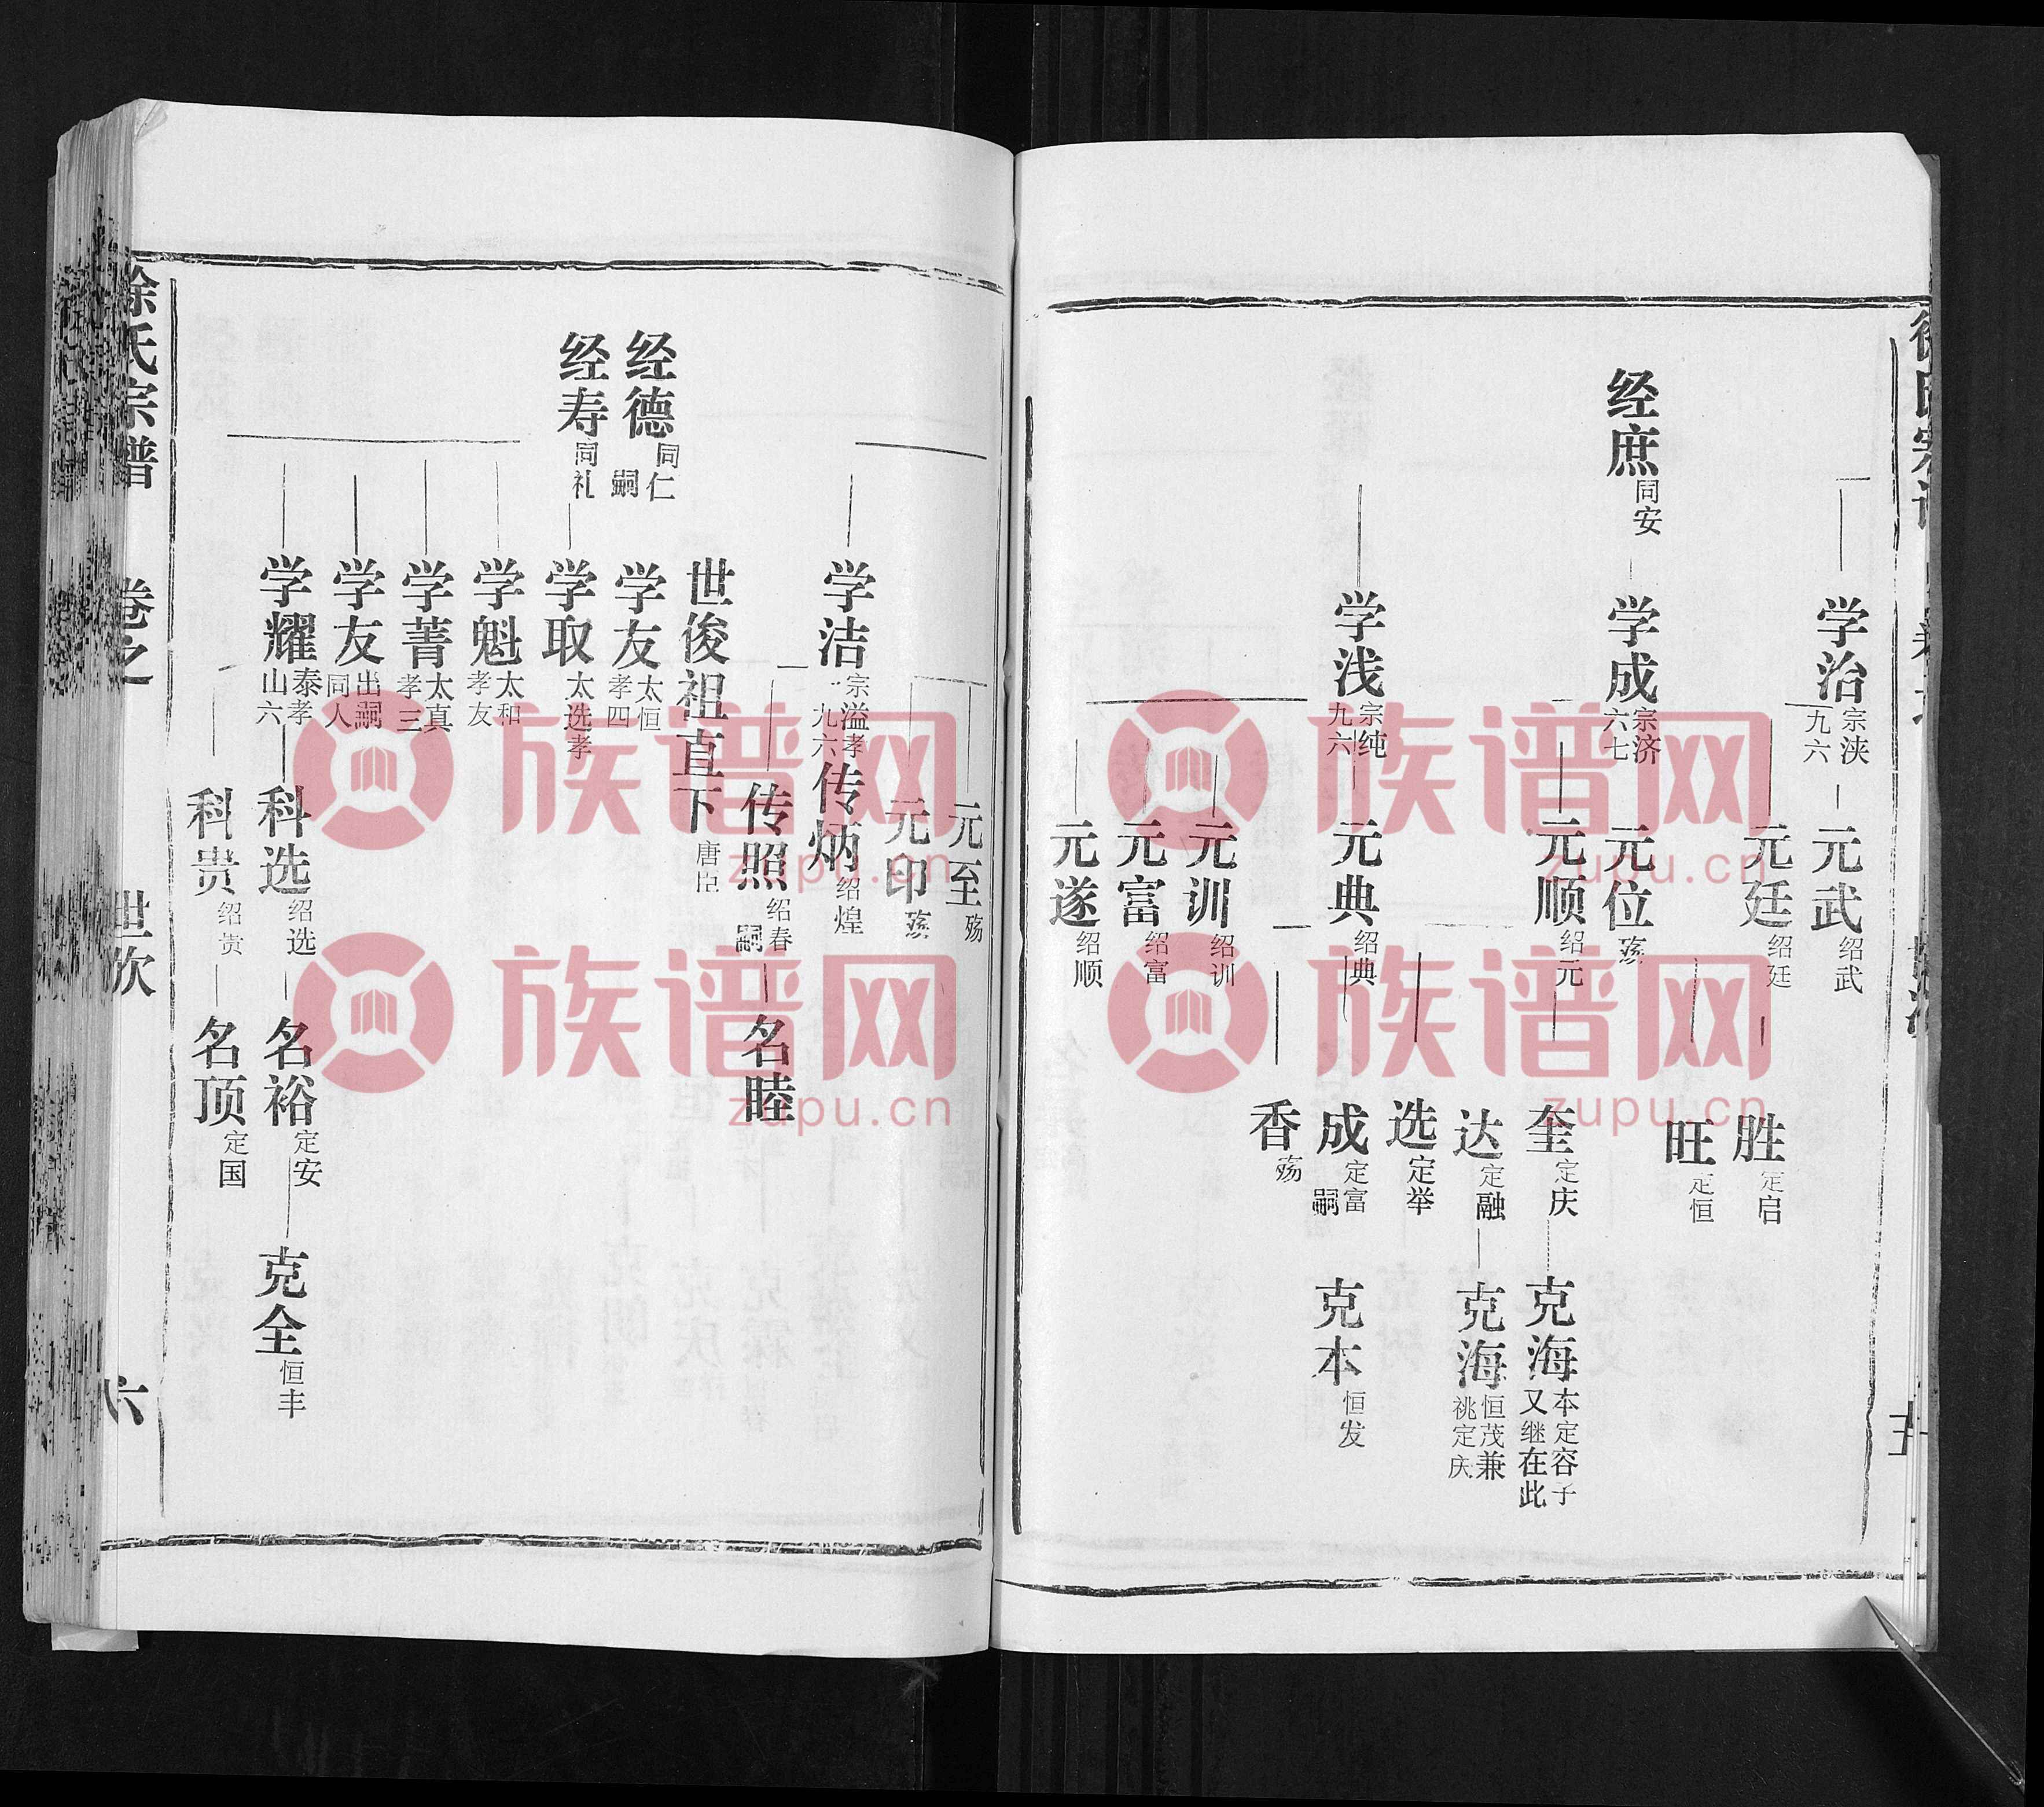 学治 宗浃九六
元武 绍武
元廷 绍廷
胜 定启
旺 定恒
经庶 同安
学成 宗济六七
元位 殇
元顺 绍元
奎 定庆
克海 本定容子又继在此
达 定融
克海 恒茂兼祧定庆
选 定举
学浅 宗纯九六
元典 绍典
成 定富嗣
克本 恒发
香 殇
元训 绍训
元富 绍富
元遂 绍顺
五
元至 殇
元印 殇
学洁 宗溢孝九六
传炳 绍煌
传照 绍春嗣
名睦
世俊祖直下 唐臣
经德 同仁嗣
学友 太恒孝四
经寿 同礼
学取 太选孝
学魁 太和孝友
学菁 太真孝三
学友 出嗣同人
学耀 泰孝山六
科选 绍选
名裕 定安
克全 恒丰
科贵 绍贵
名顶 定国
徐氏宗谱 卷之 世次 六
族谱网
zupu.cn
族谱网
zupu.cn
族谱网
zupu.cn
族谱网
zupu.cn